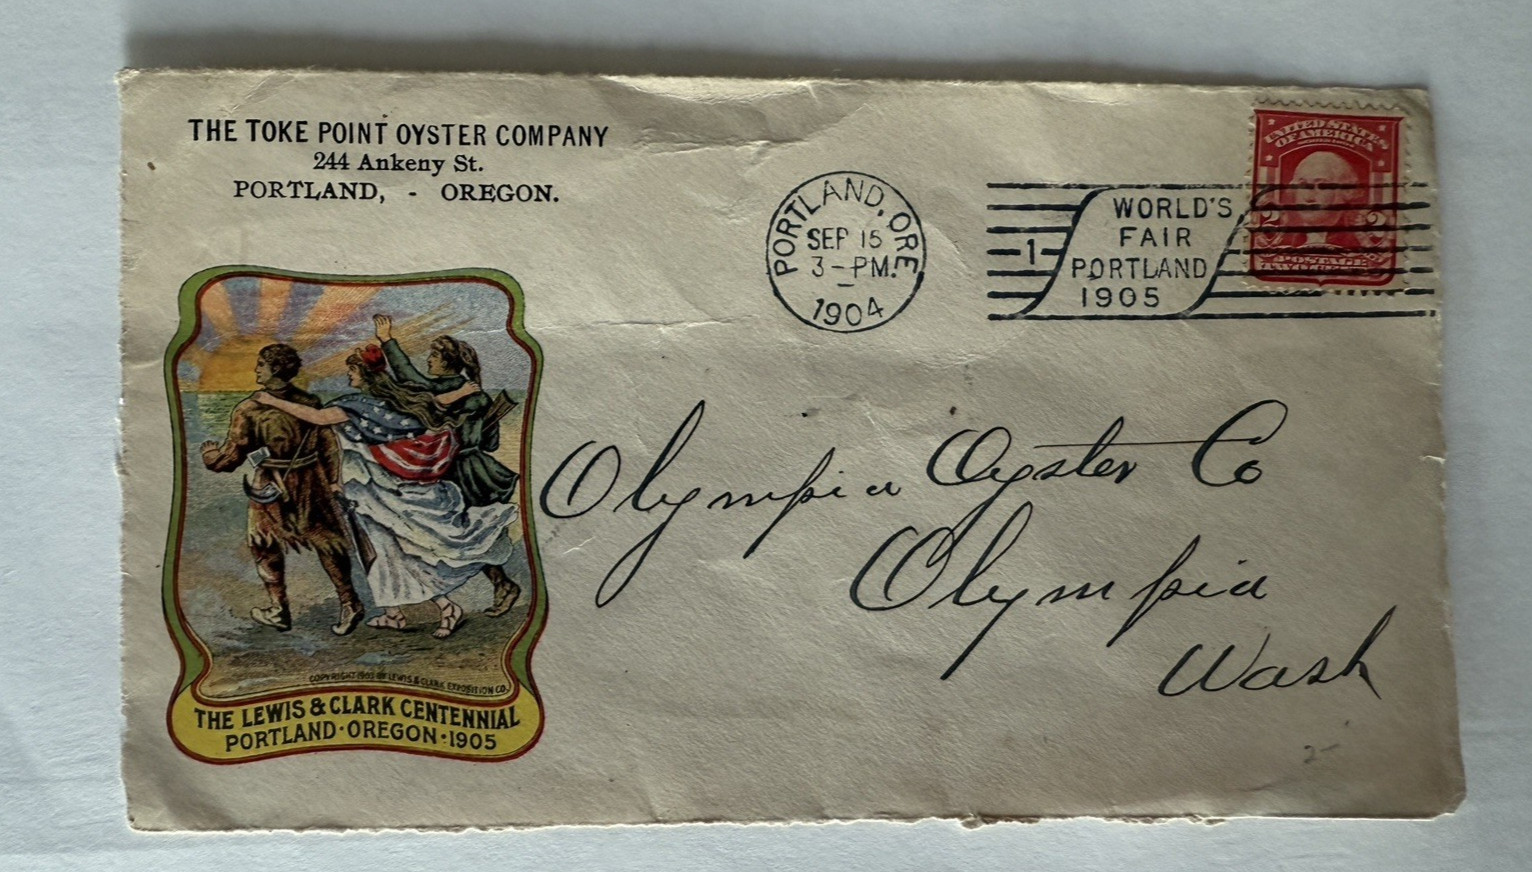 THE TOKE POINT OYSTER COMPANY
244 Ankeny St.
PORTLAND, - OREGON.
PORTLAND, ORE.
SEP 15
3-PM.
1904
1
WORLD'S
FAIR
PORTLAND
1905
UNITED STATES
OF AMERICA
2 2
POSTAGE
Olympia Oyster Co
Olympia
Wash
COPYRIGHT 1903 BY LEWIS & CLARK EXPOSITION CO.
THE LEWIS & CLARK CENTENNIAL
PORTLAND·OREGON·1905
2-